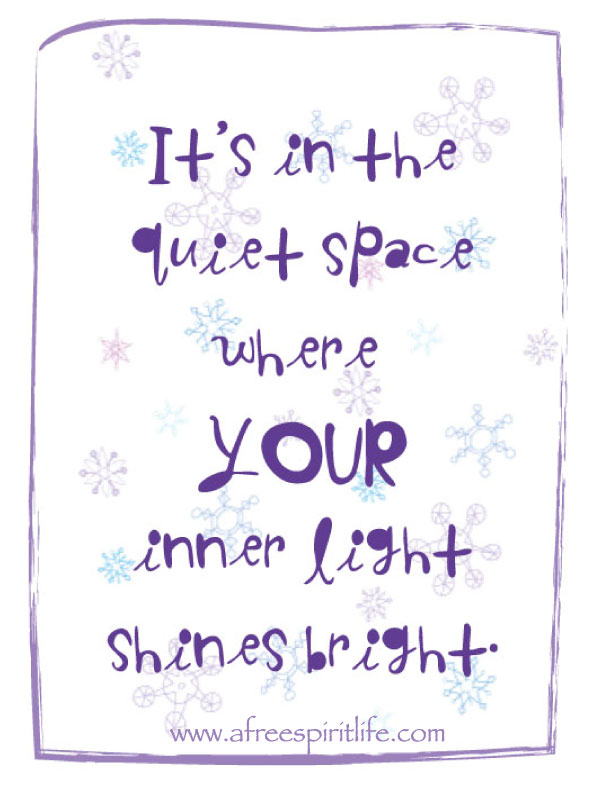 It's in the
quiet space
where
YOUR
inner light
shines bright.
www.afreespiritlife.com